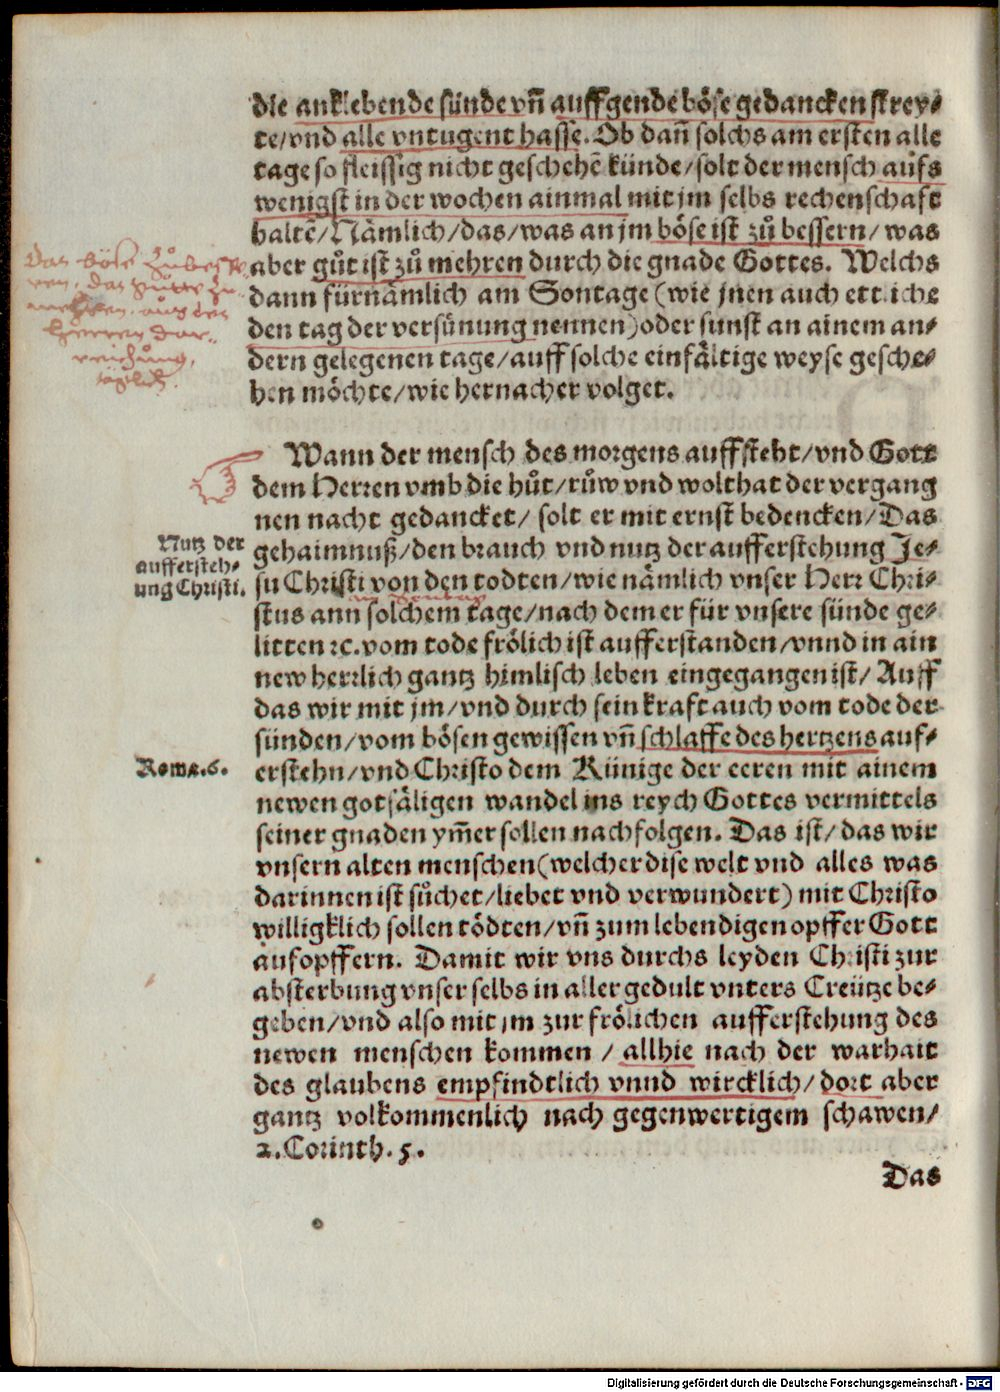 die anklebende sünde vn̄ auffgende böse gedancken strey⸗
te/vnd alle vntugent hasse. Ob dan̄ solchs am ersten alle
tage so fleissig nicht geschehē künde/solt der mensch aufs
wenigst in der wochen ainmal mit jm selbs rechenschaft
haltē/Nämlich/das/was an jm böse ist zů bessern/was
aber gůt ist zů mehren durch die gnade Gottes. Welchs
dann fürnämlich am Sontage (wie jnen auch etliche
den tag der versünung nennen) oder sunst an ainem an⸗
dern gelegenen tage/auff solche einfältige weyse gesche⸗
hen möchte/wie hernacher volget.
Das böse zů bess
ren, das gutte zu
mehren. aus des
herren dar⸗
reichung,
täglich.
Wann der mensch des morgens auffsteht/vnd Gott
dem Herren vmb die hůt/růw vnd wolthat der vergang
nen nacht gedancket/ solt er mit ernst bedencken/Das
gehaimnuß/den brauch vnd nutz der aufferstehung Je⸗
su Christi von den todten/wie nämlich vnser Herr Chri⸗
stus ann solchem tage/nach dem er für vnsere sünde ge⸗
litten ꝛc. vom tode frölich ist aufferstanden/vnnd in ain
new herrlich gantz himlisch leben eingegangen ist/ Auff
das wir mit jm/vnd durch sein kraft auch vom tode der
sünden/vom bösen gewissen vn̄ schlaffe des hertzens auf⸗
erstehn/vnd Christo dem Künige der eeren mit ainem
newen gotsäligen wandel ins reych Gottes vermittels
seiner gnaden ym̄er sollen nachfolgen. Das ist/das wir
vnsern alten menschen (welcher dise welt vnd alles was
darinnen ist sůchet/liebet vnd verwundert) mit Christo
willigklich sollen tödten/vn̄ zum lebendigen opffer Gott
aufopffern. Damit wir vns durchs leyden Christi zur
absterbung vnser selbs in aller gedult vnters Creütze be⸗
geben/vnd also mit jm zur frölichen aufferstehung des
newen menschen kommen / allhie nach der warhait
des glaubens empfindtlich vnnd wircklich/dort aber
gantz volkommenlich nach gegenwertigem schawen/
2. Corinth. 5.
Nutz der
auffersteh⸗
ung Christi.
Roma. 6.
Das
Digitalisierung gefördert durch die Deutsche Forschungsgemeinschaft - DFG